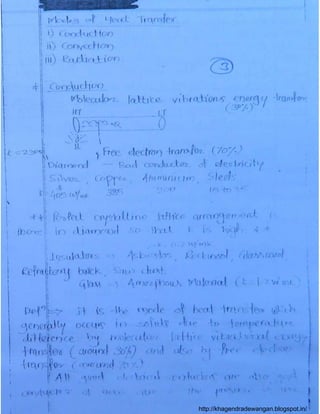 Modes of Heat Transfer
i) Conduction
ii) Convection
iii) Radiation
3
* Conduction
Molecular lattice vibrations energy transfer
(30%)
HT LT
free electron transfer (70%)
k = 2300
Diamond - Bad conductor of electricity
Silver, Copper, Aluminium, Steels
k = 405 W/mk 385 200
** Perfect crystalline lattice arrangement is
there in diamond so that k is high. **
Insulators → Asbestos, Rockwool, Glasswool
Refractory brick, Saw dust
Glass → Amorphous Material
Defn ⇒ it is the mode of heat transfer which
generally occurs in solids due to temperature
difference by molecular lattice vibrational energy
transfer (around 30%) and also by free electron
transfer (around 70%)
All good electrical conductors are also good
conductors of the presence of
http://khagendradewangan.blogspot.in/